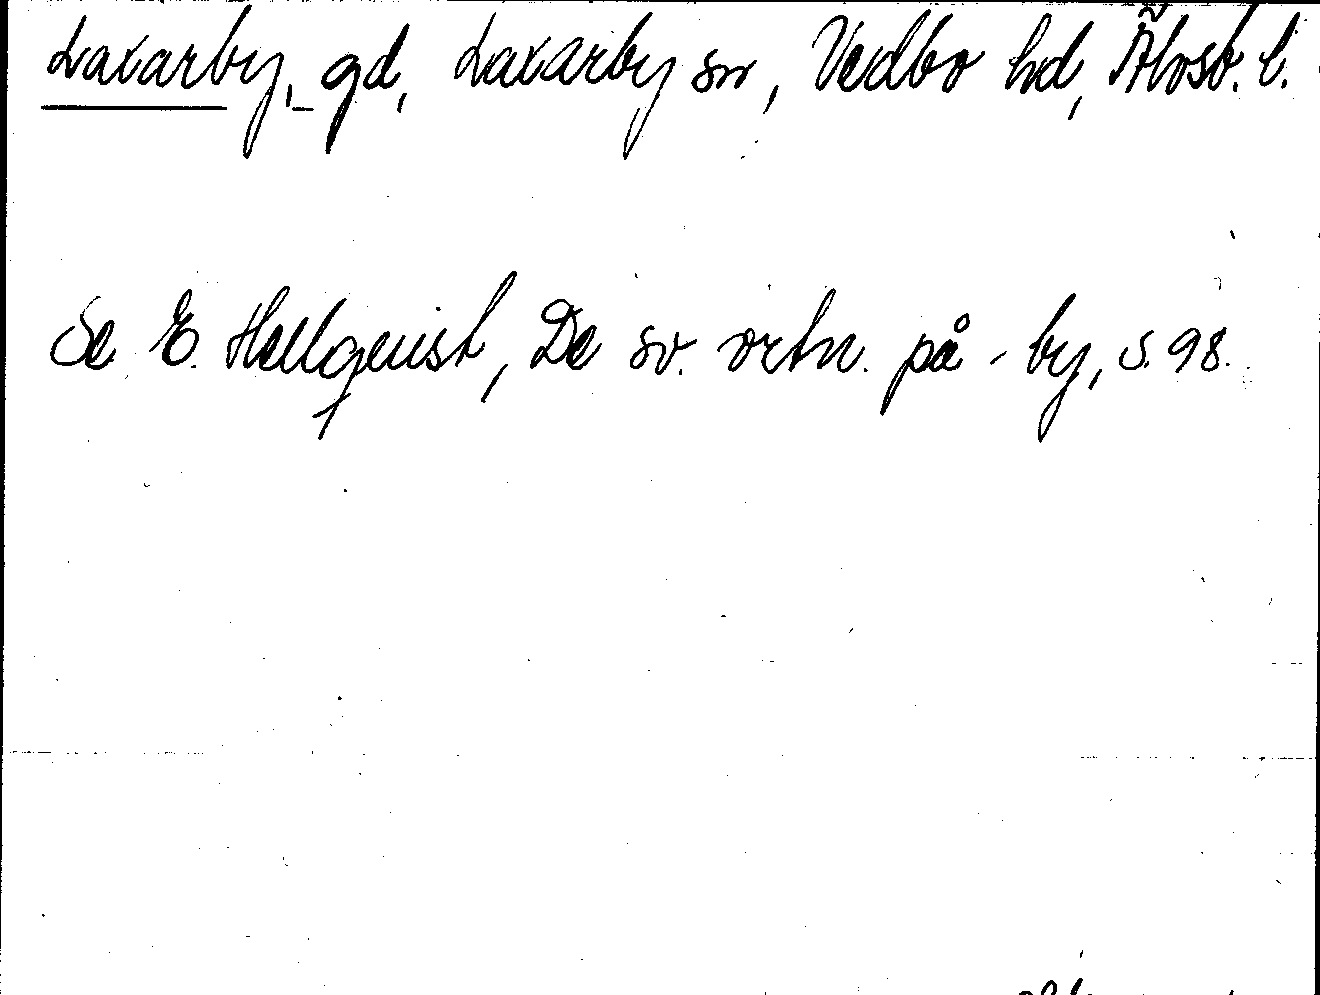 Laxarby, gd, Laxarby sn, Vedbo hd, Älvsb. l.
Se E. Hellquist, De sv. ortn. på -by, s. 98.